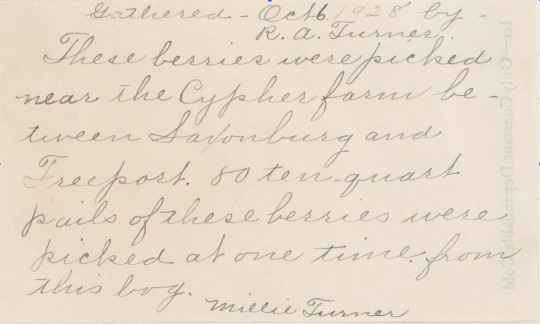 Gathered - Oct 6 1928 by -
R. A. Turner.
These berries were picked
near the Cypher farm be-
tween Saxonburg and
Freeport. 80 ten-quart
pails of these berries were
picked at one time from
this bog.
Millie Turner
Ice—Only Constant Dependable Cold